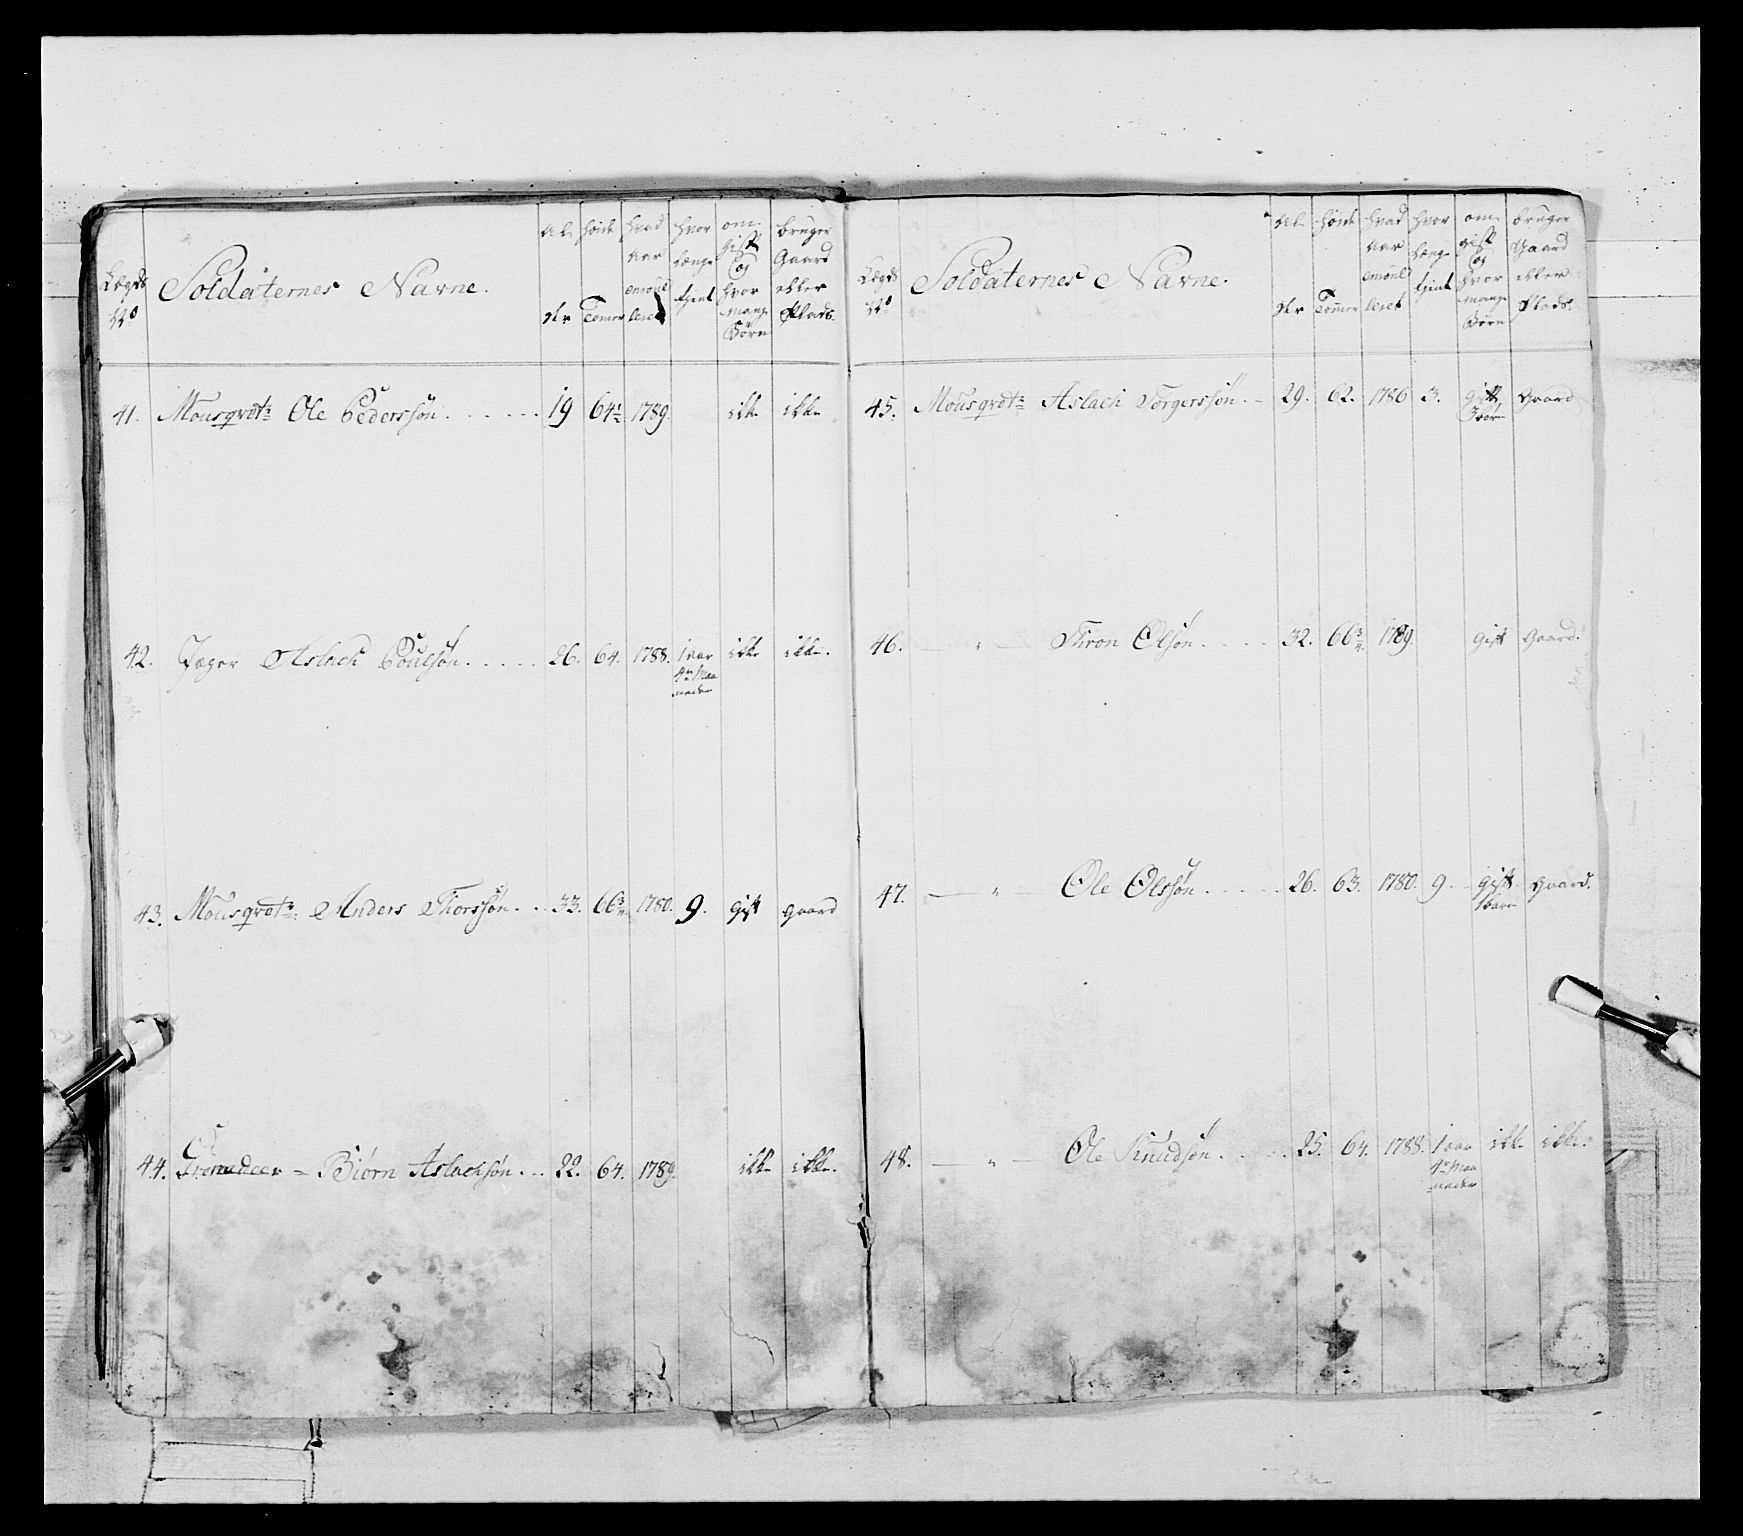 Lægds No
Soldaternes Navne.
Al der
høide Tommer
hvad aar enroulleret
hvor længe tjent
om gift og hvor mange Børn
bruger Gaard eller Plads.
41. Mousqvetr Ole Pederssøn. 19 64½ 1789. ikke ikke
42. Jæger Aslach Poulsøn. 26. 64. 1788. 1 aar ikke ikke.
4re Maa
neder
43. Mousqvetr: Anders Thorssøn. 33. 66¾ 1780. 9. Gift gaard
44. Grenadeer – Biørn Aslachsøn. 22. 64. 1789. ikke ikke.
Lægds No
Soldaternes Navne.
Al der
høide Tommer
hvad aar enroulleret
hvor længe tjent
om gift og hvor mange Børn
bruger Gaard eller Plads.
45. Mousqvetr Aslach Torgerssøn. 29. 62. 1786 3. Gift gaard
3 børn
46. — " — Olsøn. 32. 66¾ 1789. Gift gaard.
47. — " — Ole Olssøn. 26. 63. 1780. 9. Gift gaard.
1 barn
48. — " — Ole Knudsøn. 25. 64. 1788. 1 aar ikke ikke.
4re Maa
neder